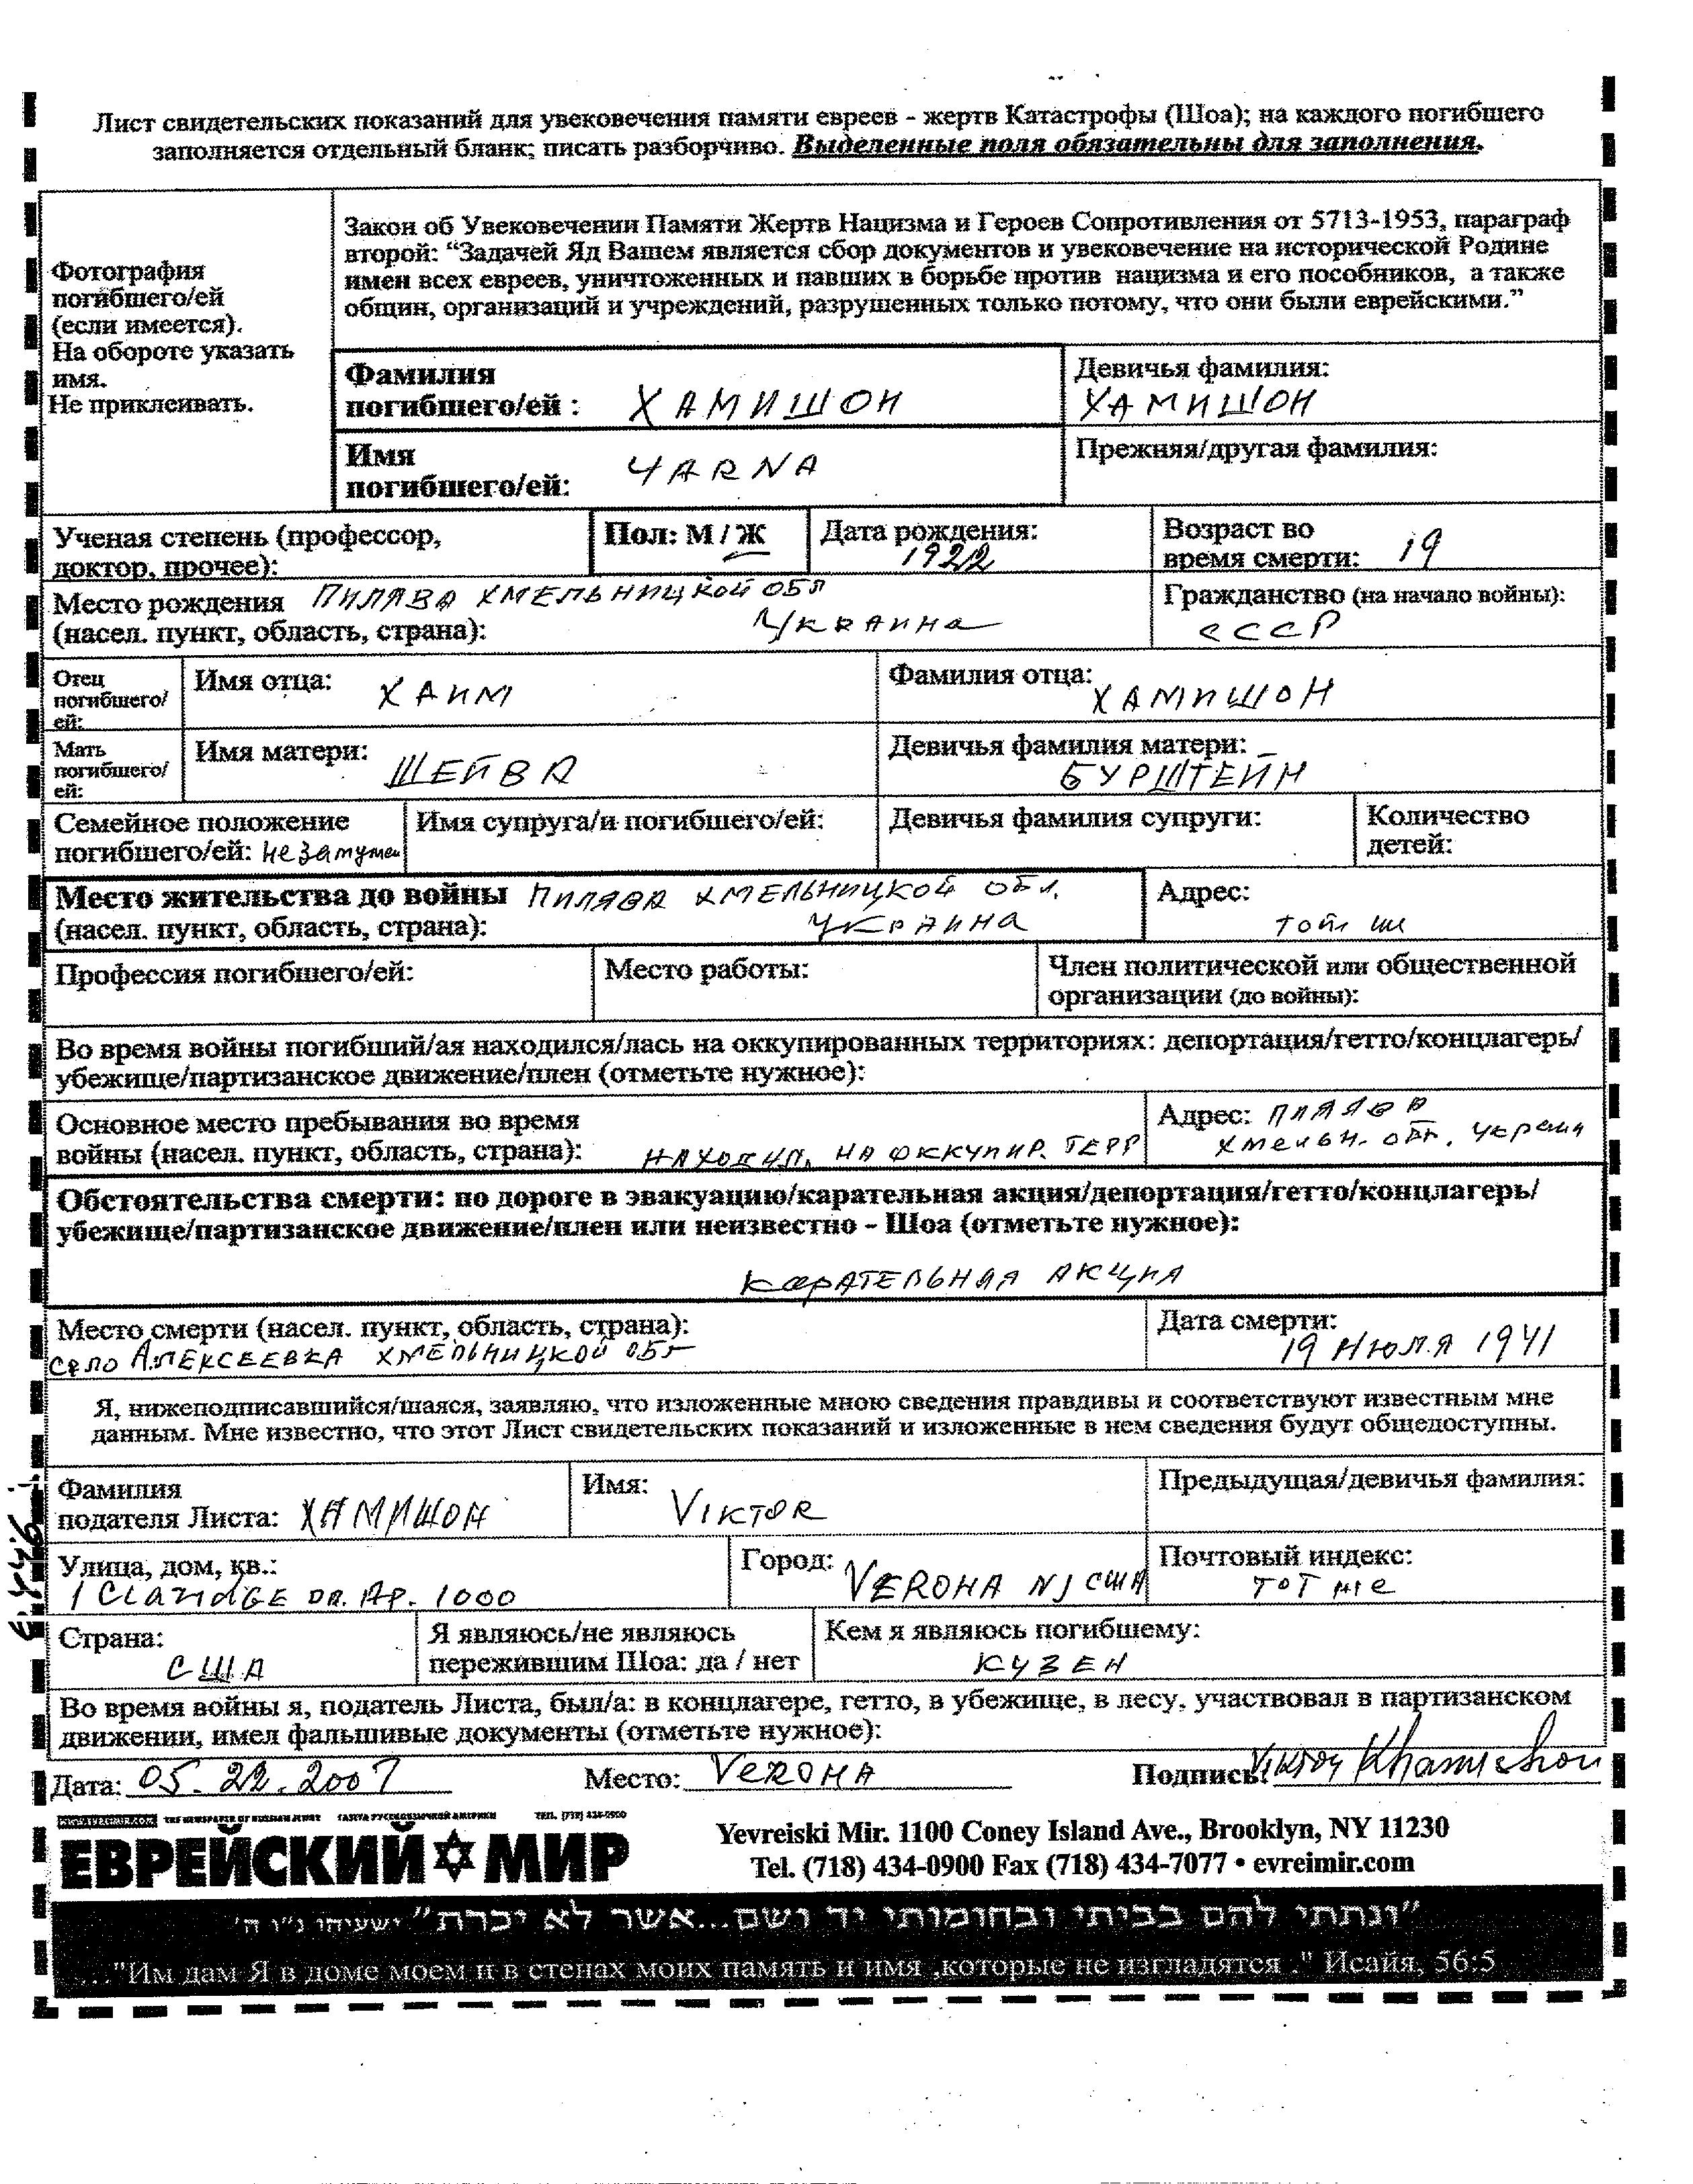 Лист свидетельских показаний для увековечения памяти евреев - жертв Катастрофы (Шоа); на каждого погибшего
заполняется отдельный бланк; писать разборчиво. Выделенные поля обязательны для заполнения.
Фотография
погибшего/ей
(если имеется).
На обороте указать
имя.
Не приклеивать.
Закон об Увековечении Памяти Жертв Нацизма и Героев Сопротивления от 5713-1953, параграф
второй: “Задачей Яд Вашем является сбор документов и увековечение на исторической Родине
имен всех евреев, уничтоженных и павших в борьбе против нацизма и его пособников, а также
общин, организаций и учреждений, разрушенных только потому, что они были еврейскими.”
Фамилия
погибшего/ей : ХАМИШОН
Девичья фамилия:
ХАМИШОН
Имя
погибшего/ей: ЧARNA
Прежняя/другая фамилия:
Ученая степень (профессор,
доктор, прочее):
Пол: М / Ж
Дата рождения:
1922
Возраст во
время смерти: 19
Место рождения ПИЛЯВА ХМЕЛЬНИЦКОЙ ОБЛ
(насел. пункт, область, страна): УКРАИНА
Гражданство (на начало войны):
СССР
Отец
погибшего/
ей:
Имя отца: ХАИМ
Фамилия отца:
ХАМИШОН
Мать
погибшего/
ей:
Имя матери: ШЕЙВА
Девичья фамилия матери:
БУРШТЕЙН
Семейное положение
погибшего/ей: незамужем
Имя супруга/и погибшего/ей:
Девичья фамилия супруги:
Количество
детей:
Место жительства до войны ПИЛЯВА ХМЕЛЬНИЦКОЙ ОБЛ.
(насел. пункт, область, страна): УКРАИНА
Адрес:
Профессия погибшего/ей:
Место работы:
Член политической или общественной
организации (до войны):
Во время войны погибший/ая находился/лась на оккупированных территориях: депортация/гетто/концлагерь/
убежище/партизанское движение/плен (отметьте нужное):
Основное место пребывания во время
войны (насел. пункт, область, страна): НАХОДИЛ. НА ОККУПИР. ТЕРР
Адрес: ПИЛЯВА
Хмельн. обл.
Обстоятельства смерти: по дороге в эвакуацию/карательная акция/депортация/гетто/концлагерь/
убежище/партизанское движение/плен или неизвестно - Шоа (отметьте нужное):
КАРАТЕЛЬНАЯ АКЦИЯ
Место смерти (насел. пункт, область, страна):
СЕЛО АЛЕКСЕЕВКА ХМЕЛЬНИЦКОЙ ОБЛ
Дата смерти:
19 ИЮЛЯ 1941
Я, нижеподписавшийся/шаяся, заявляю, что изложенные мною сведения правдивы и соответствуют известным мне
данным. Мне известно, что этот Лист свидетельских показаний и изложенные в нем сведения будут общедоступны.
Фамилия
подателя Листа: ХАМИШОН
Имя:
VIKTOR
Предыдущая/девичья фамилия:
Улица, дом, кв.:
1 CLARIDGE DR. AP. 1000
Город: VEROНА NJ США
Почтовый индекс:
ТОТ же
Страна:
США
Я являюсь/не являюсь
пережившим Шоа: да / нет
Кем я являюсь погибшему:
КУЗЕН
Во время войны я, податель Листа, был/а: в концлагере, гетто, в убежище, в лесу, участвовал в партизанском
движении, имел фальшивые документы (отметьте нужное):
Дата: 05.22.2007
Место: VEROНА
Подпись: Viktor Khamishon
WWW.EVREIMIR.COM THE NEWSPAPER OF RUSSIAN JEWRY ГАЗЕТА РУССКОЯЗЫЧНОЙ АМЕРИКИ ТЕЛ. (718) 434-0900
ЕВРЕЙСКИЙ МИР
Yevreiski Mir. 1100 Coney Island Ave., Brooklyn, NY 11230
Tel. (718) 434-0900 Fax (718) 434-7077 • evreimir.com
"ונתתי להם בביתי ובחומותי יד ושם...אשר לא יכרת" ישעיהו נ"ו ה'
..."Им дам Я в доме моем и в стенах моих память и имя ,которые не изгладятся ." Исайя, 56:5